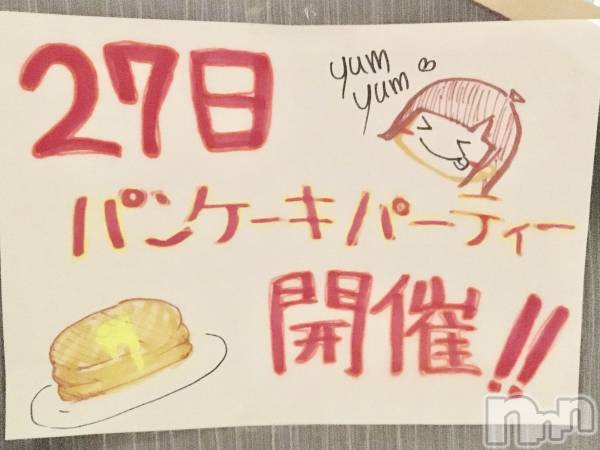 27日
yum
yum
パンケーキパーティー
開催!!